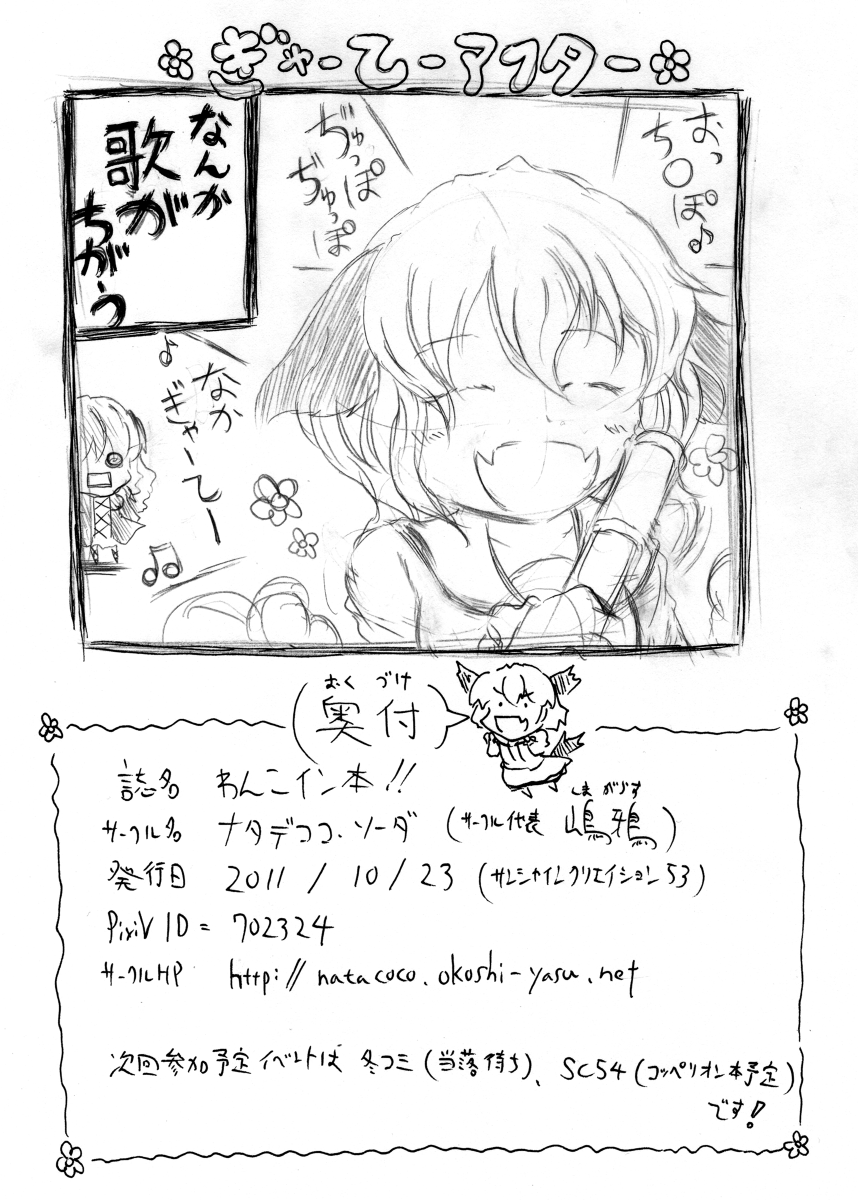 ぎゃーてーアフター
おっ
ち○ぽ♪
ぢゅっぽ
ぢゅっぽ
なんか
歌が
ちがう
♪
なか
ぎゃーてー
おくづけ
奥付
誌名 わんこイン本!!
しまがらす
サークル名 ナタデココ・ソーダ (サークル代表 嶋鴉)
発行日 2011/10/23 (サンシャインクリエイション53)
PixiV ID = 702324
サークルHP http://natacoco.okoshi-yasu.net
次回参加予定イベントは 冬コミ(当落待ち)、SC54(コッペリオン本予定)
です!